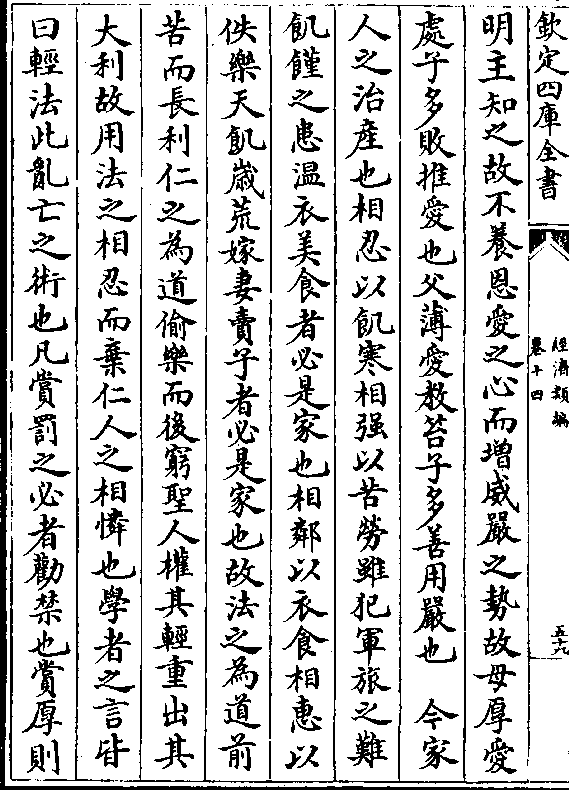 欽定四庫全書
經濟類編
卷十四
五六
明主知之故不養恩愛之心而增威嚴之勢故母厚愛
處子多敗推愛也父薄愛教笞子多善用嚴也　今家
人之治產也相忍以飢寒相强以苦勞雖犯軍旅之難
飢饉之患溫衣美食者必是家也相鄰以衣食相惠以
佚樂天飢歲荒嫁妻賣子者必是家也故法之為道前
苦而長利仁之為道偷樂而後窮聖人權其輕重出其
大利故用法之相忍而棄仁人之相憐也學者之言皆
曰輕法此亂亡之術也凡賞罰之必者勸禁也賞厚則